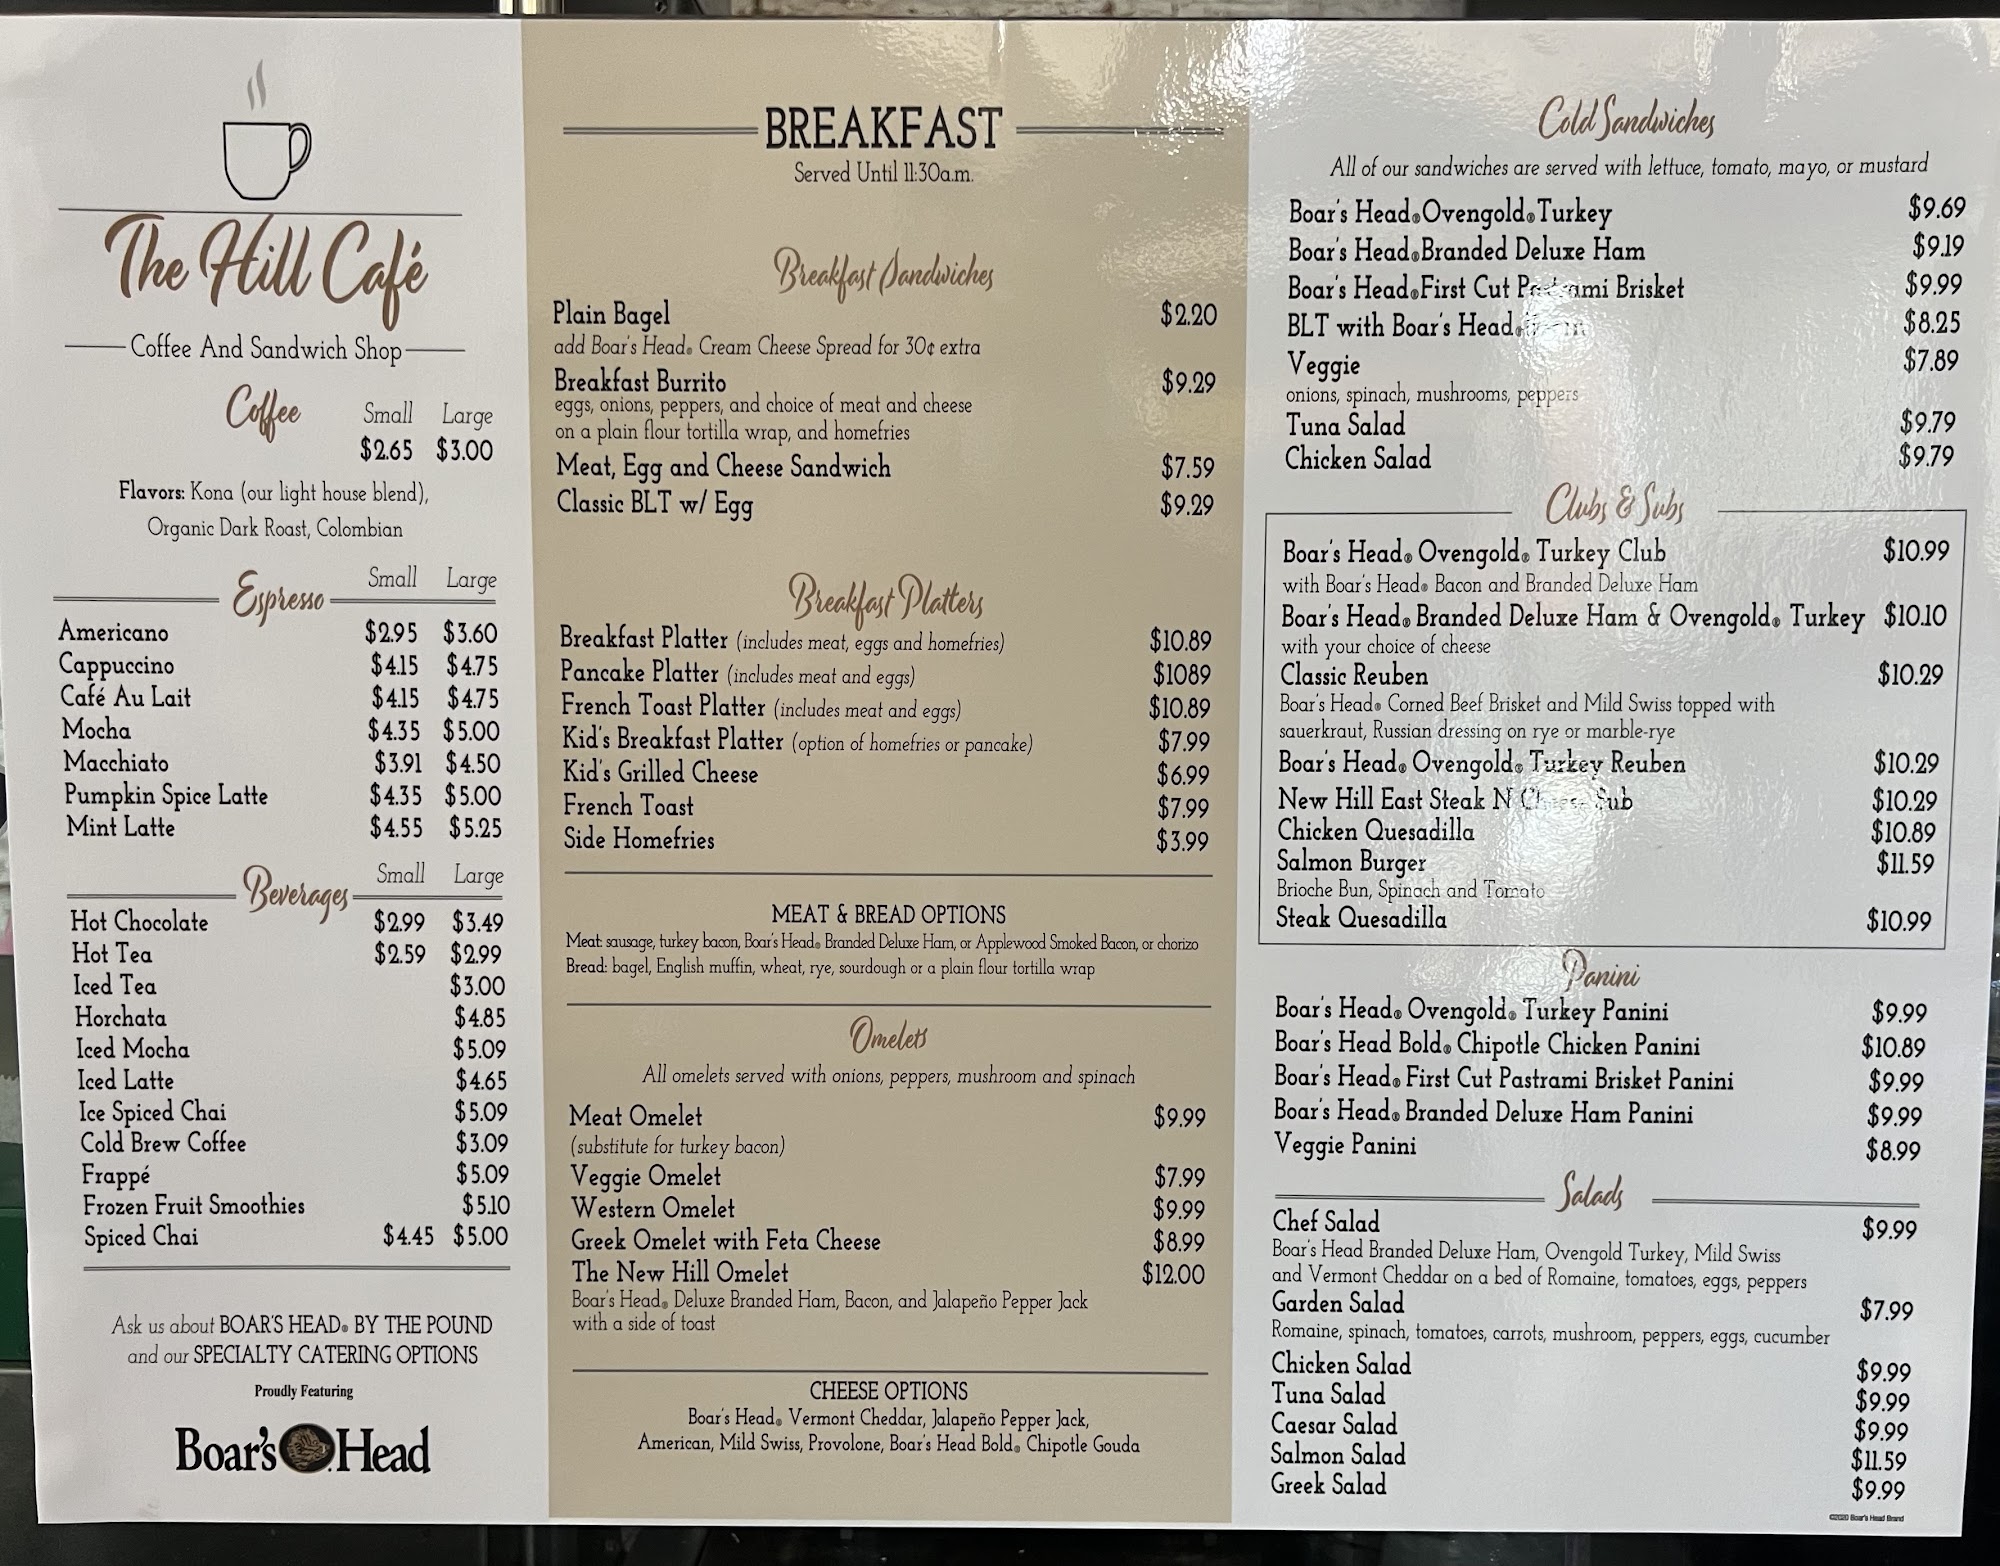 The Hill Café
Coffee And Sandwich Shop
Coffee Small Large
$2.65 $3.00
Flavors: Kona (our light house blend),
Organic Dark Roast, Colombian
Espresso Small Large
Americano $2.95 $3.60
Cappuccino $4.15 $4.75
Café Au Lait $4.15 $4.75
Mocha $4.35 $5.00
Macchiato $3.91 $4.50
Pumpkin Spice Latte $4.35 $5.00
Mint Latte $4.55 $5.25
Beverages Small Large
Hot Chocolate $2.99 $3.49
Hot Tea $2.59 $2.99
Iced Tea $3.00
Horchata $4.85
Iced Mocha $5.09
Iced Latte $4.65
Ice Spiced Chai $5.09
Cold Brew Coffee $3.09
Frappé $5.09
Frozen Fruit Smoothies $5.10
Spiced Chai $4.45 $5.00
Ask us about BOAR'S HEAD® BY THE POUND
and our SPECIALTY CATERING OPTIONS
Proudly Featuring
Boar's Head
BREAKFAST
Served Until 11:30a.m.
Breakfast Sandwiches
Plain Bagel $2.20
add Boar's Head® Cream Cheese Spread for 30¢ extra
Breakfast Burrito $9.29
eggs, onions, peppers, and choice of meat and cheese
on a plain flour tortilla wrap, and homefries
Meat, Egg and Cheese Sandwich $7.59
Classic BLT w/ Egg $9.29
Breakfast Platters
Breakfast Platter (includes meat, eggs and homefries) $10.89
Pancake Platter (includes meat and eggs) $1089
French Toast Platter (includes meat and eggs) $10.89
Kid's Breakfast Platter (option of homefries or pancake) $7.99
Kid's Grilled Cheese $6.99
French Toast $7.99
Side Homefries $3.99
MEAT & BREAD OPTIONS
Meat: sausage, turkey bacon, Boar's Head® Branded Deluxe Ham, or Applewood Smoked Bacon, or chorizo
Bread: bagel, English muffin, wheat, rye, sourdough or a plain flour tortilla wrap
Omelets
All omelets served with onions, peppers, mushroom and spinach
Meat Omelet $9.99
(substitute for turkey bacon)
Veggie Omelet $7.99
Western Omelet $9.99
Greek Omelet with Feta Cheese $8.99
The New Hill Omelet $12.00
Boar's Head® Deluxe Branded Ham, Bacon, and Jalapeño Pepper Jack
with a side of toast
CHEESE OPTIONS
Boar's Head® Vermont Cheddar, Jalapeño Pepper Jack,
American, Mild Swiss, Provolone, Boar's Head Bold® Chipotle Gouda
Cold Sandwiches
All of our sandwiches are served with lettuce, tomato, mayo, or mustard
Boar's Head® Ovengold® Turkey $9.69
Boar's Head® Branded Deluxe Ham $9.19
Boar's Head® First Cut Pastrami Brisket $9.99
BLT with Boar's Head® $8.25
Veggie $7.89
onions, spinach, mushrooms, peppers
Tuna Salad $9.79
Chicken Salad $9.79
Clubs & Subs
Boar's Head® Ovengold® Turkey Club $10.99
with Boar's Head® Bacon and Branded Deluxe Ham
Boar's Head® Branded Deluxe Ham & Ovengold® Turkey $10.10
with your choice of cheese
Classic Reuben $10.29
Boar's Head® Corned Beef Brisket and Mild Swiss topped with
sauerkraut, Russian dressing on rye or marble-rye
Boar's Head® Ovengold® Turkey Reuben $10.29
New Hill East Steak N Cheese Sub $10.29
Chicken Quesadilla $10.89
Salmon Burger $11.59
Brioche Bun, Spinach and Tomato
Steak Quesadilla $10.99
Panini
Boar's Head® Ovengold® Turkey Panini $9.99
Boar's Head Bold® Chipotle Chicken Panini $10.89
Boar's Head® First Cut Pastrami Brisket Panini $9.99
Boar's Head® Branded Deluxe Ham Panini $9.99
Veggie Panini $8.99
Salads
Chef Salad $9.99
Boar's Head Branded Deluxe Ham, Ovengold Turkey, Mild Swiss
and Vermont Cheddar on a bed of Romaine, tomatoes, eggs, peppers
Garden Salad $7.99
Romaine, spinach, tomatoes, carrots, mushroom, peppers, eggs, cucumber
Chicken Salad $9.99
Tuna Salad $9.99
Caesar Salad $9.99
Salmon Salad $11.59
Greek Salad $9.99
Boar's Head Brand